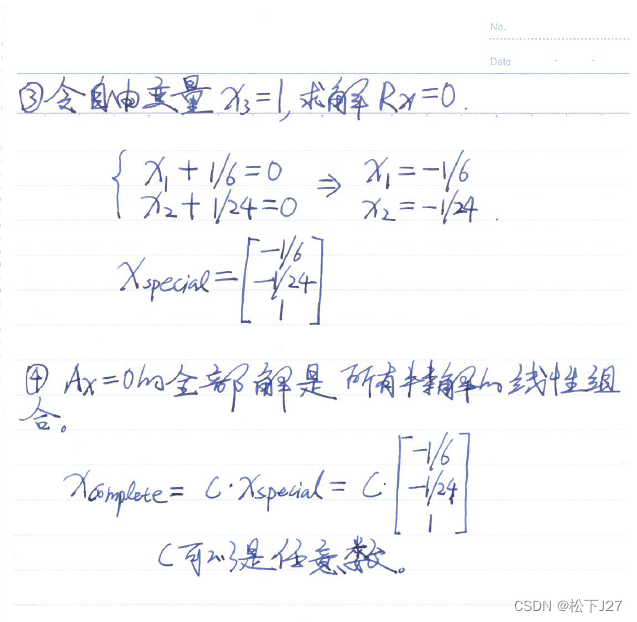 No.
Date
③令自由变量 x₃=1,求解 Rx=0.
{ x₁+1/6=0 ⇒ x₁=-1/6
x₂+1/24=0 x₂=-1/24.
xspecial=[-1/6
-1/24
1]
④ Ax=0的全部解是所有特解的线性组
合。
xcomplete= C·xspecial= C·[-1/6
-1/24
1]
C可以是任意数。
CSDN @松下J27